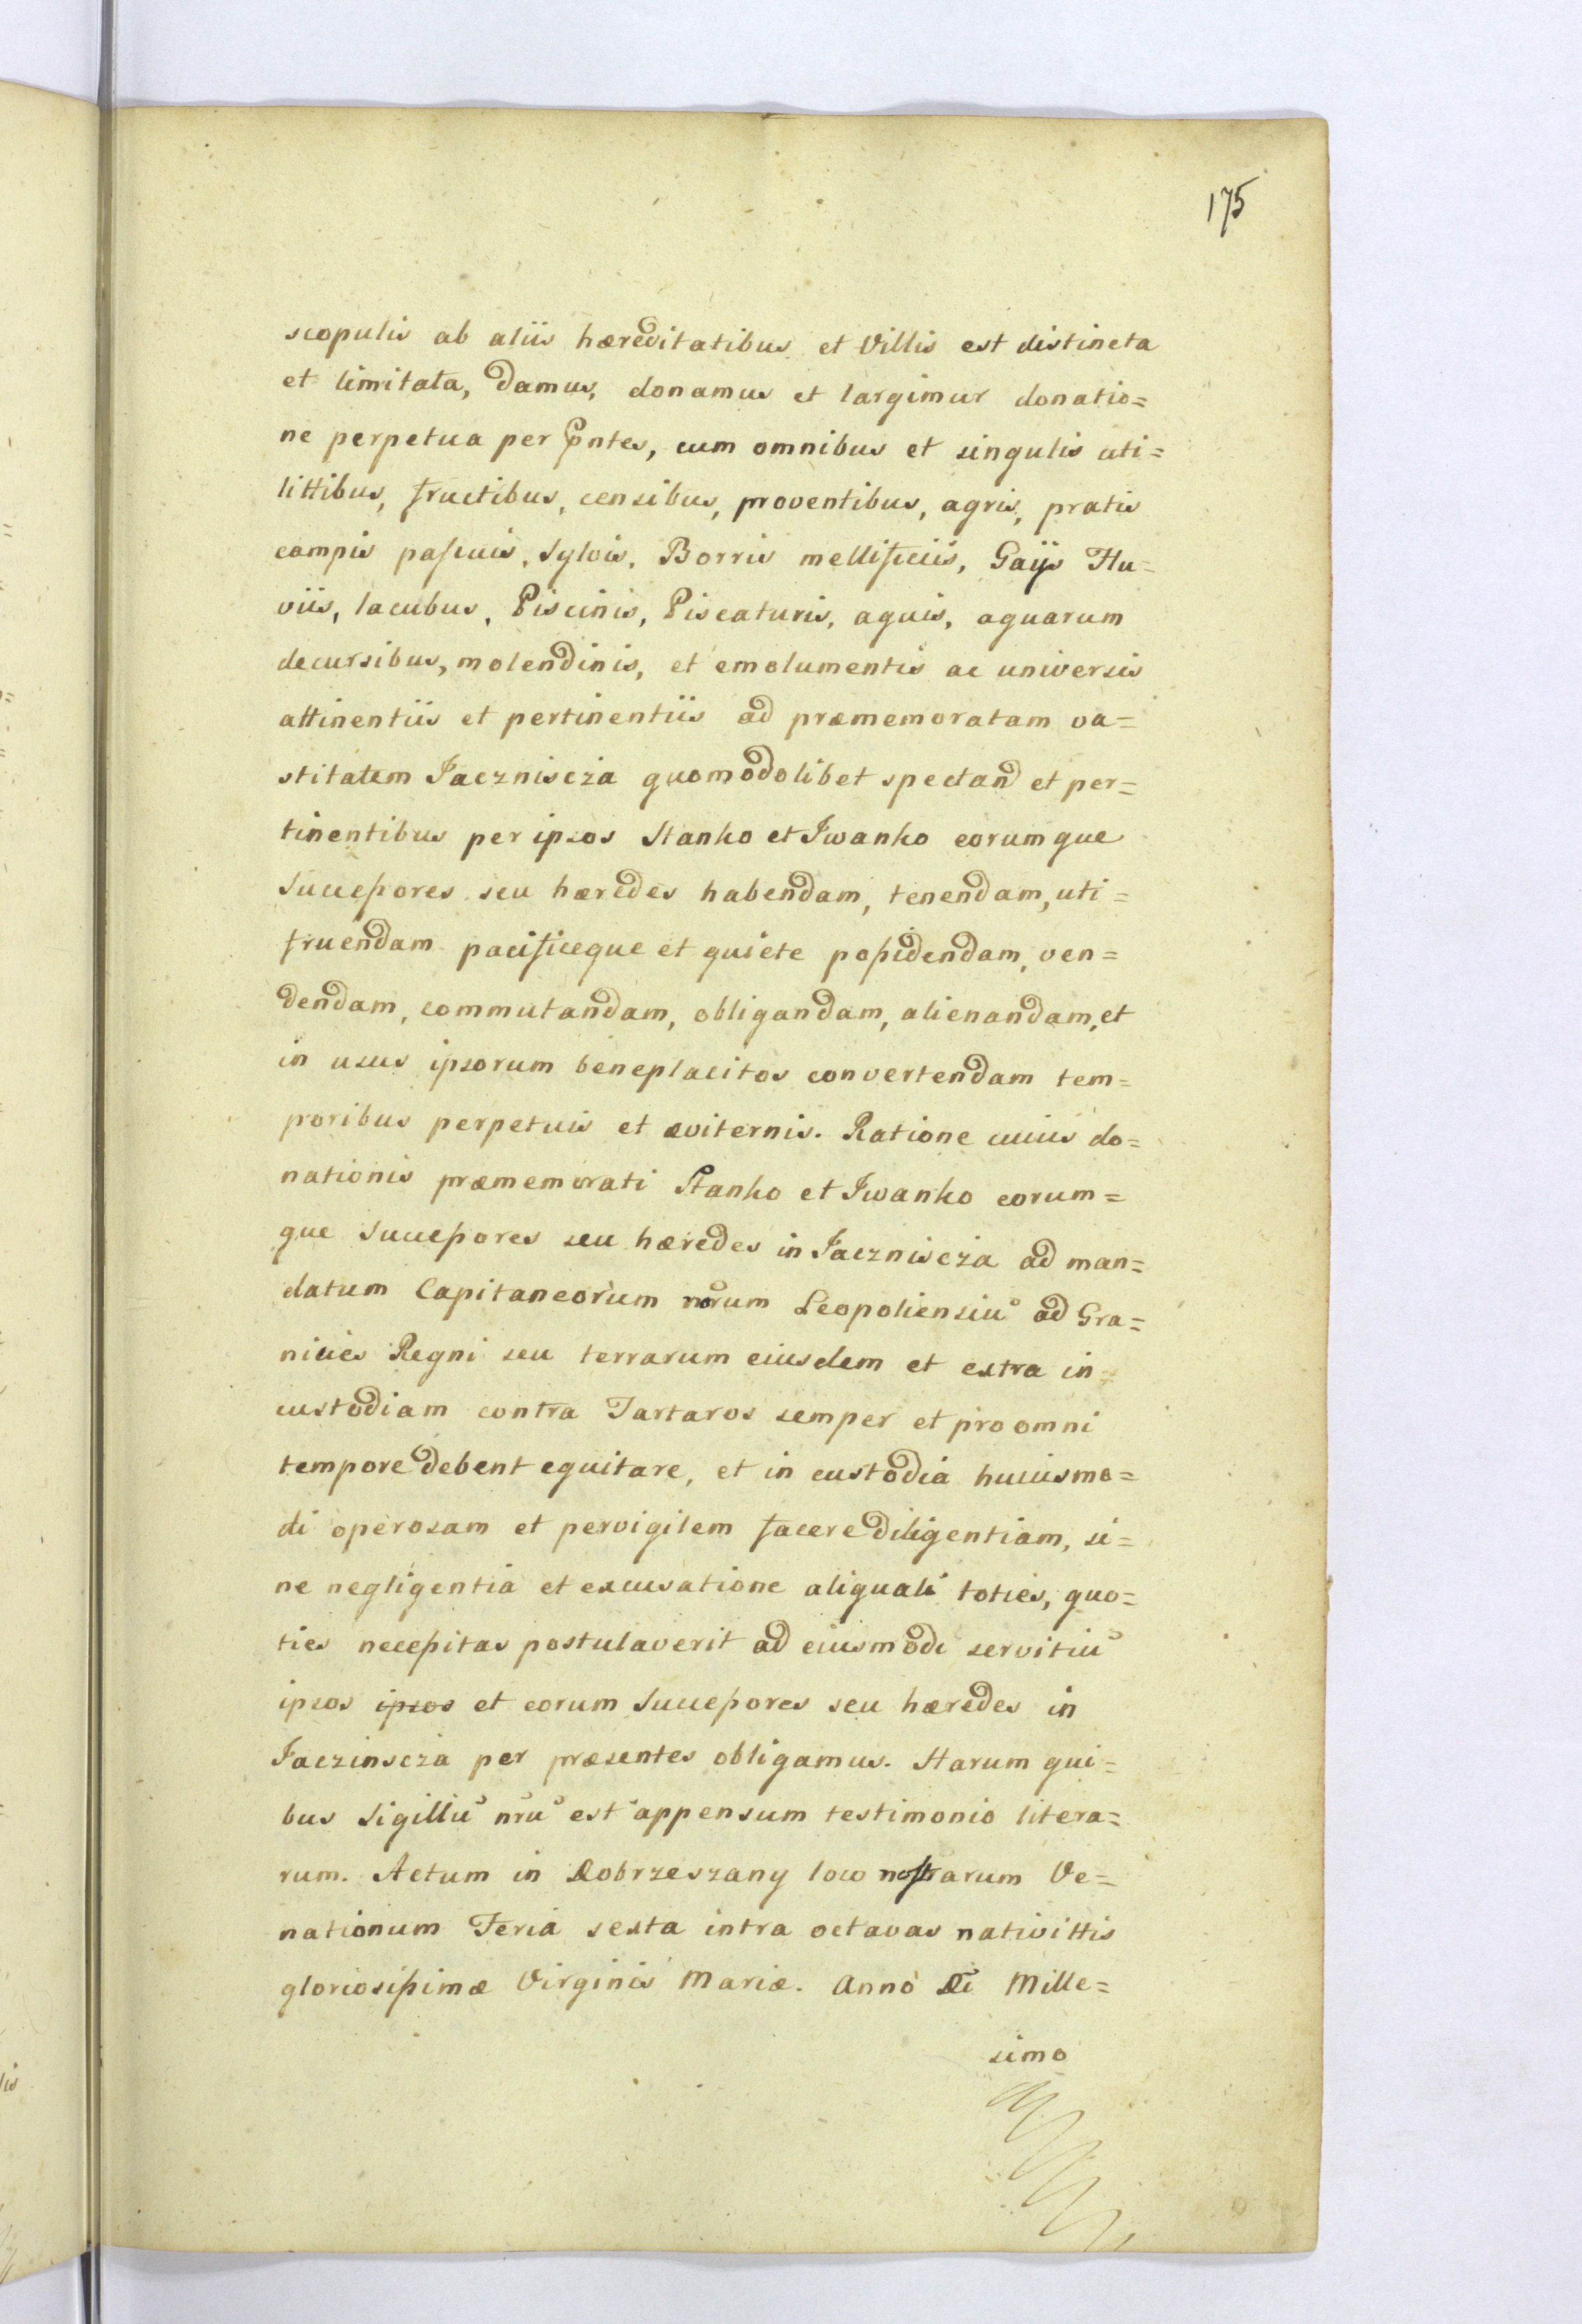 175
scopulis ab aliis hæreditatibus et Villis est distincta
et limitata, Damus, donamus et largimur donatio=
ne perpetua per Pntes, cum omnibus et singulis uti=
littibus, fructibus, censibus, proventibus, agris, pratis
campis pascuis, Sylvis, Borris mellificiis, Gaijs Flu=
viis, lacubus, Piscinis, Piscaturis, aquis, aquarum
decursibus, molendinis, et emolumentis ac universis
attinentiis et pertinentiis ad præmemoratam va=
stitatem Jaczniscza quomodolibet spectand et per=
tinentibus per ipsos Stanko et Iwanko eorumque
Successores seu hæredes habendam, tenendam, uti=
fruendam pacificeque et quiete possidendam, ven=
dendam, commutandam, obligandam, alienandam, et
in usus ipsorum beneplacitos convertendam tem=
poribus perpetuis et æviternis. Ratione cuius do=
nationis præmemorati Stanko et Iwanko eorum=
que Successores seu hæredes in Jaczniscza ad man=
datum Capitaneorum nrorum Leopoliensiu ad Gra=
nicies Regni seu terrarum eiusdem et extra in
custodiam contra Tartaros semper et pro omni
tempore debent equitare, et in custodia huiusmo=
di operosam et pervigilem facere diligentiam, si=
ne negligentia et excusatione aliquali toties, quo=
ties necessitas postulaverit ad eiusmodi servitiu
ipsos ipsos et eorum Successores seu hæredes in
Jaczinscza per præsentes obligamus. Harum qui=
bus Sigillu nru est appensum testimonio litera=
rum. Actum in Dobrzeszany loco nostrarum Ve=
nationum Feria sexta intra octavas nativittis
gloriosissimæ Virginis Mariæ. Anno Di Mille=
simo